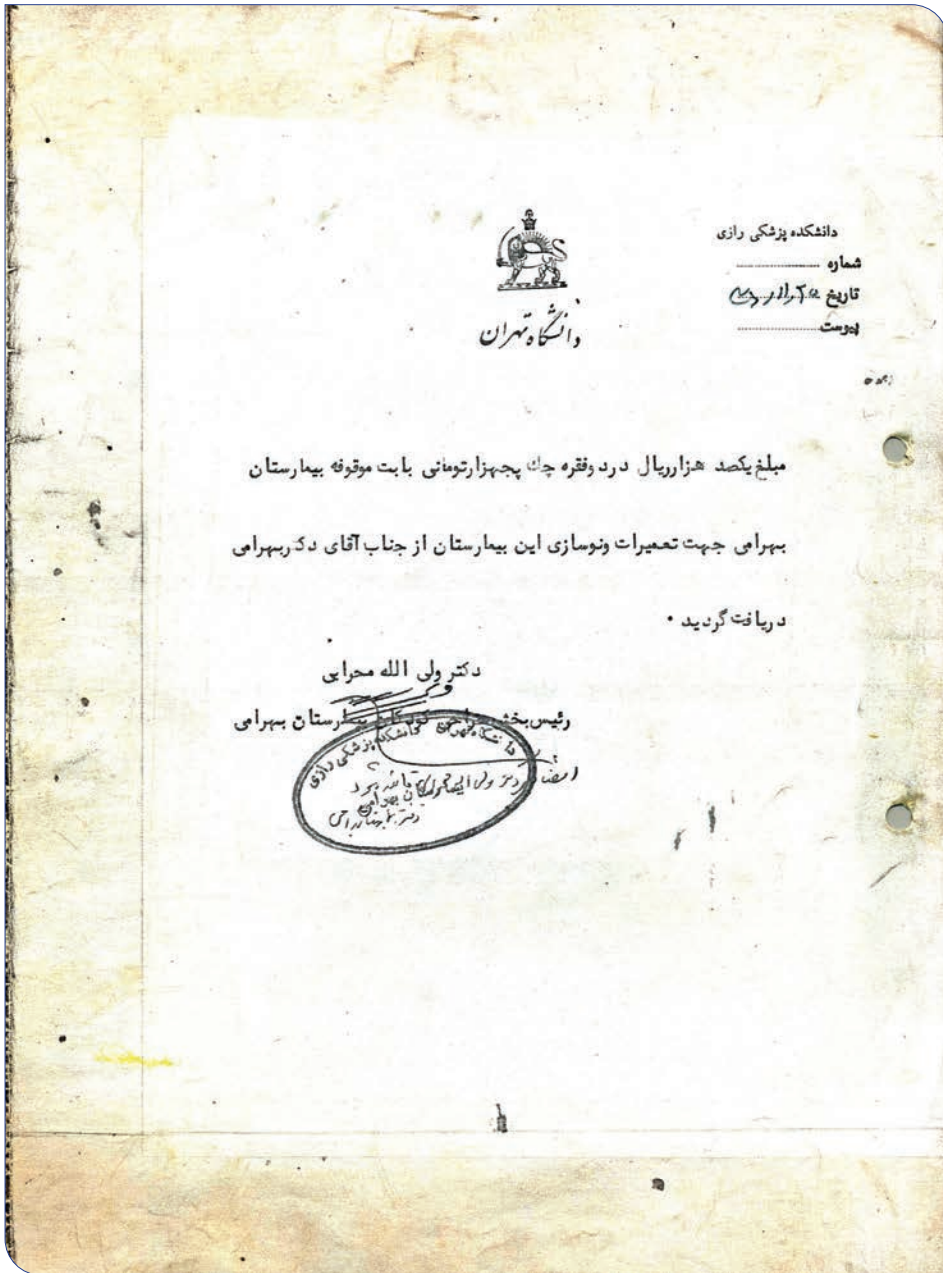 دانشکده پزشکی رازی
شماره
تاریخ
پیوست
دانشگاه تهران
مبلغ یکصد هزارریال دردوفقره چك پجهزارتومانی بابت موقوفه بیمارستان
بهرامی جهت تعمیرات ونوسازی این بیمارستان از جناب آقای دکتربهرامی
دریافت گردید .
دکتر ولی الله محرابی
رئیس بخش جراحی کودکان بیمارستان بهرامی
دانشگاه تهران دانشکده پزشکی رازی